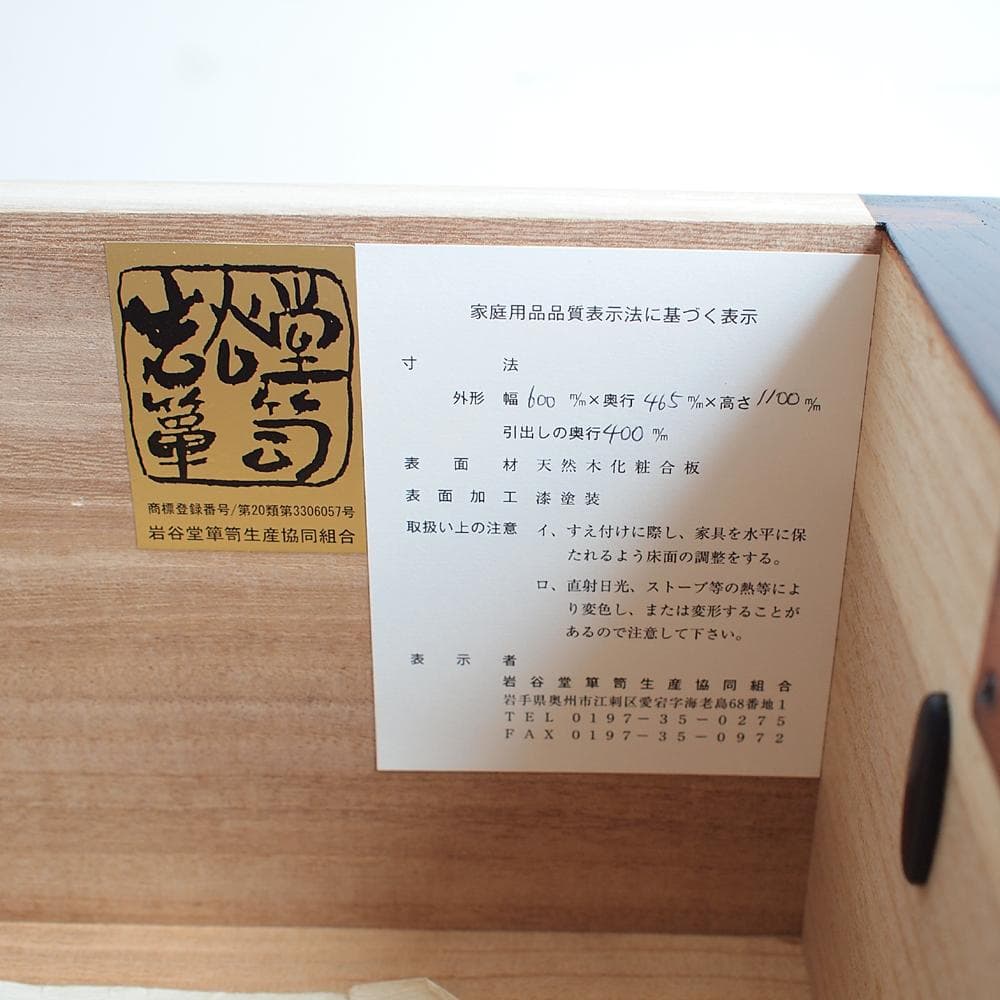 岩谷堂
箪笥
商標登録番号/第20類第3306057号
岩谷堂箪笥生産協同組合
家庭用品品質表示法に基づく表示
寸法
外形 幅600㎜×奥行465㎜×高さ1100㎜
引出しの奥行400㎜
表面材 天然木化粧合板
表面加工 漆塗装
取扱い上の注意 イ、すえ付けに際し、家具を水平に保
たれるよう床面の調整をする。
ロ、直射日光、ストーブ等の熱等によ
り変色し、または変形することが
あるので注意して下さい。
表示者
岩谷堂箪笥生産協同組合
岩手県奥州市江刺区愛宕字海老島68番地1
TEL 0197-35-0275
FAX 0197-35-0972